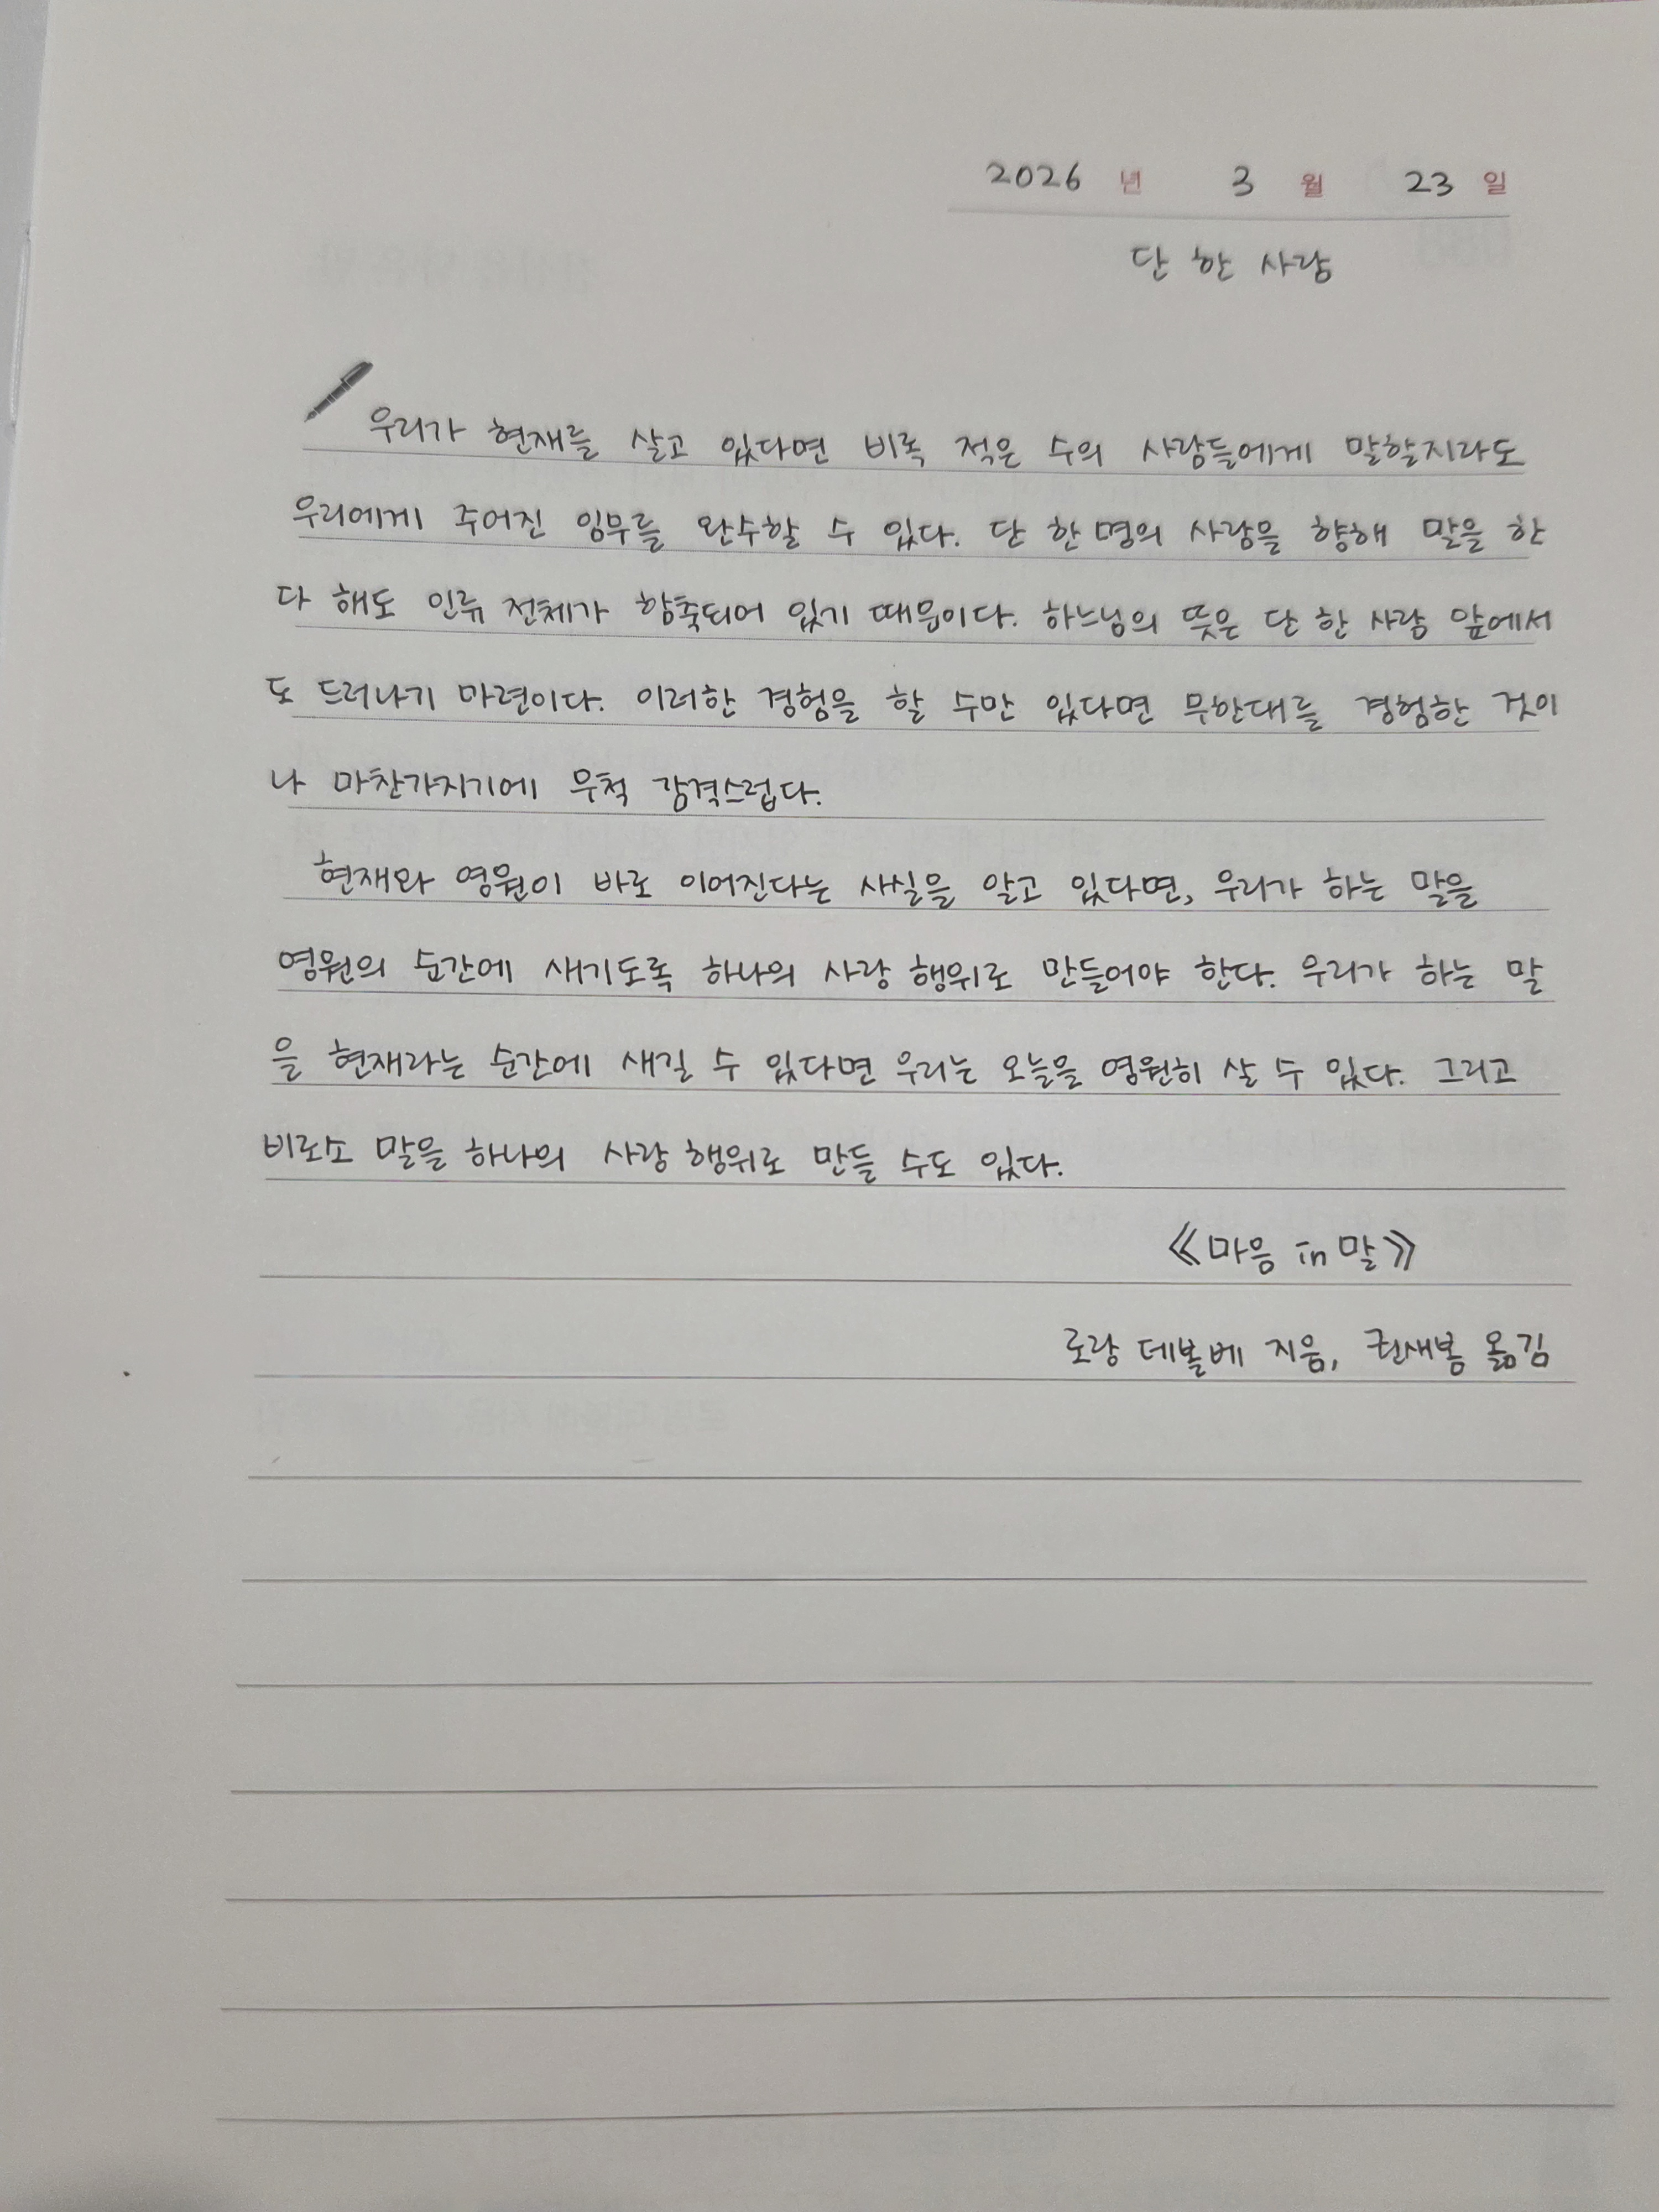 2026 년 3 월 23 일
단 한 사람
우리가 현재를 살고 있다면 비록 적은 수의 사람들에게 말할지라도
우리에게 주어진 임무를 완수할 수 있다. 단 한 명의 사람을 향해 말을 한
다 해도 인류 전체가 함축되어 있기 때문이다. 하느님의 뜻은 단 한 사람 앞에서
도 드러나기 마련이다. 이러한 경험을 할 수만 있다면 무한대를 경험한 것이
나 마찬가지기에 무척 감격스럽다.
현재와 영원이 바로 이어진다는 사실을 알고 있다면, 우리가 하는 말을
영원의 순간에 새기도록 하나의 사랑 행위로 만들어야 한다. 우리가 하는 말
을 현재라는 순간에 새길 수 있다면 우리는 오늘을 영원히 살 수 있다. 그리고
비로소 말을 하나의 사랑 행위로 만들 수도 있다.
《마음 in 말》
로랑 데볼베 지음, 권새봄 옮김